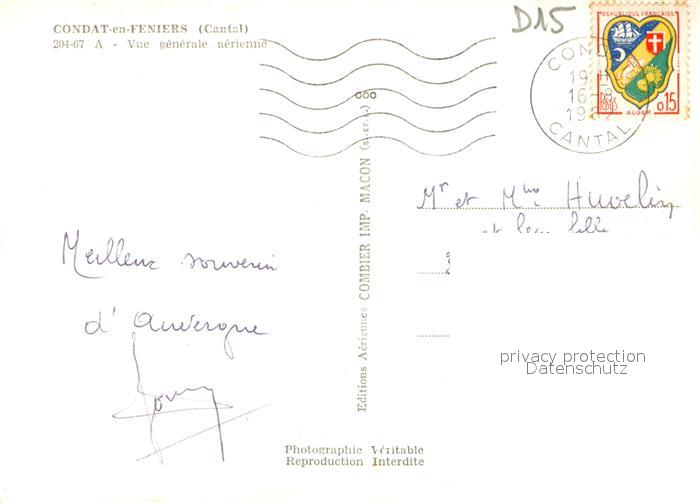 CONDAT-en-FENIERS (Cantal)
204-67 A - Vue générale aérienne
D15
REPUBLIQUE FRANÇAISE
POSTES
0,15
ALGER
COND
19 H
16-8
CANTAL
Editions Aériennes COMBIER IMP. MACON (S.-ET-L.)
Mr et Mme Huvelin
et leur fille
Meilleur souvenir
d'Auvergne
privacy protection
Datenschutz
Photographie Véritable
Reproduction Interdite